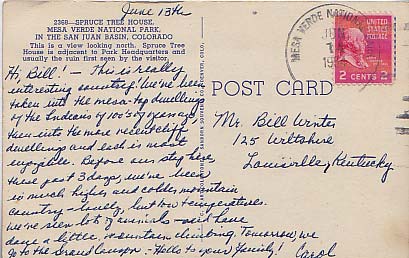 June 13th
2368—SPRUCE TREE HOUSE,
MESA VERDE NATIONAL PARK,
IN THE SAN JUAN BASIN, COLORADO
This is a view looking north. Spruce Tree
House is adjacent to Park Headquarters and
usually the ruin first seen by the visitor.
Hi, Bill! — This is really
interesting country! We've been
taken into the mesa-top dwellings
of the Indians of 100's of years ago
then into the more recent cliff
dwellings and each is most
enjoyable. Before our stay here
these past 3 days, we've been
in much higher and colder mountain
country - lovely, but low temperatures.
We've seen lots of animals - and have
done a little mountain climbing. Tomorrow, we
go to the Grand Canyon - Hello to your family! Carol
POST CARD
Mr. Bill Winter
125 Wiltshire
Louisville, Kentucky
MESA VERDE NATIONAL
JUN
UNITED STATES
POSTAGE
2 CENTS 2